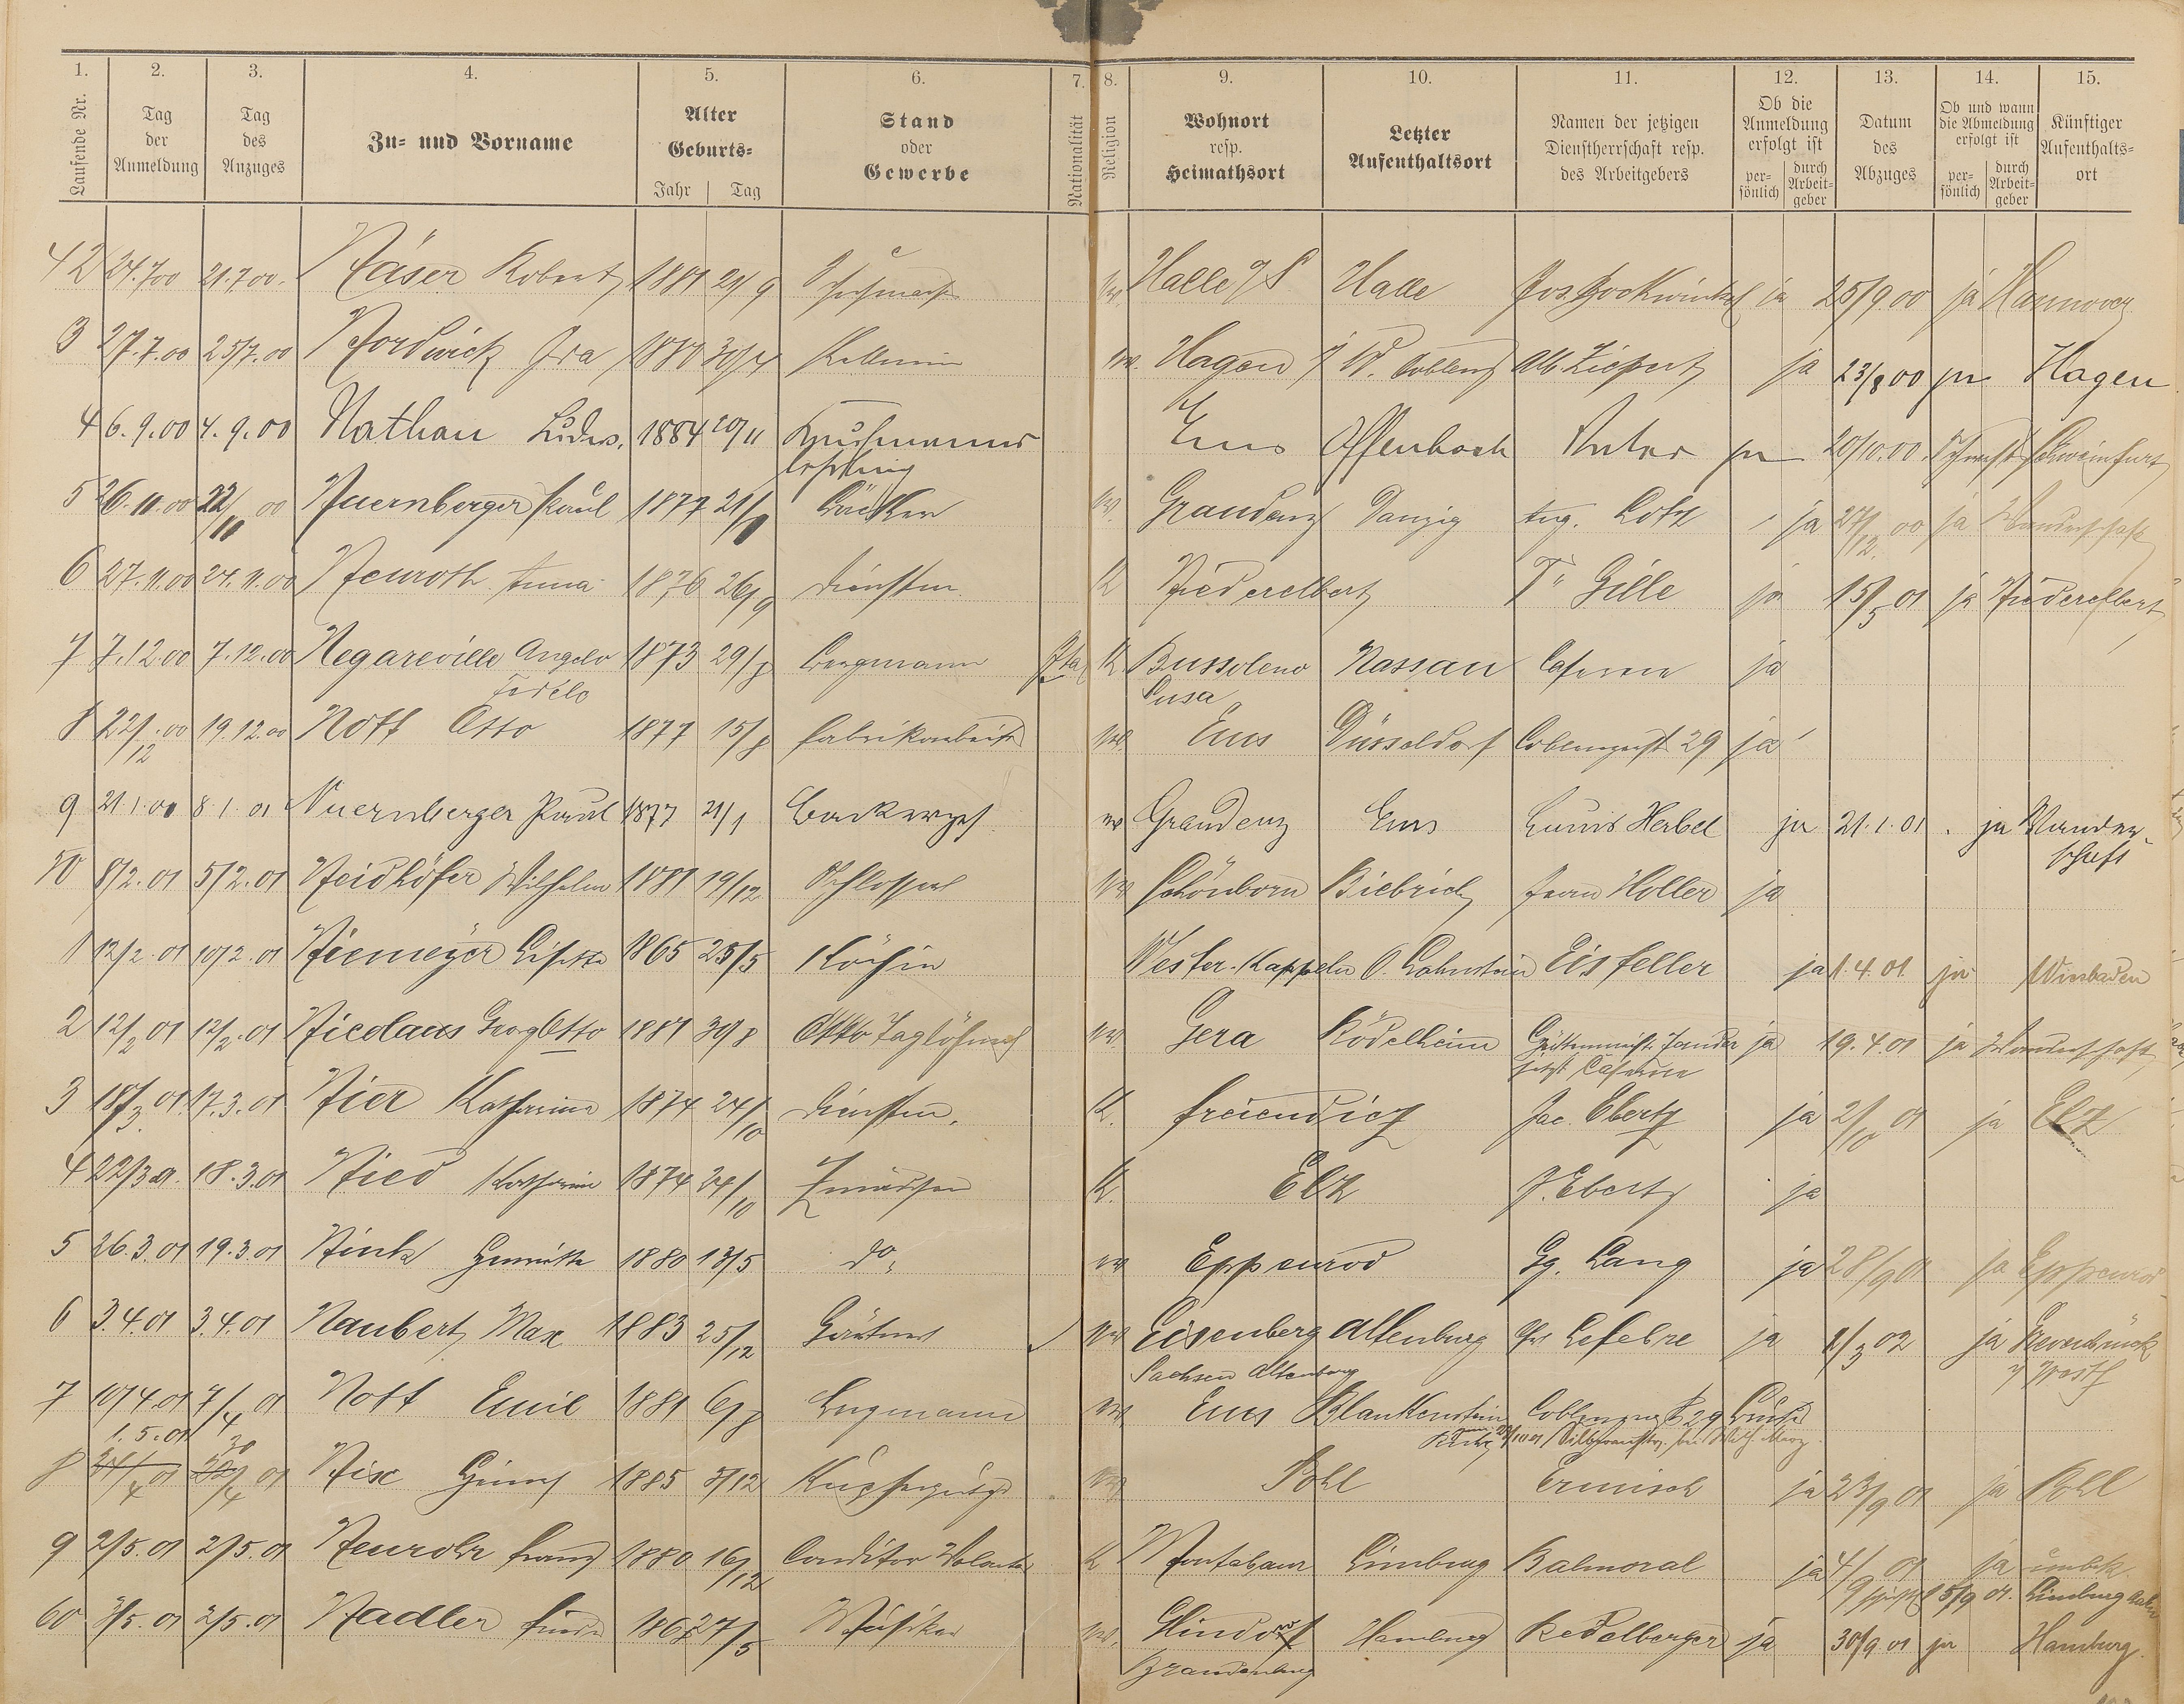 1. 2. 3. 4. 5. 6. 7. 8. 9. 10. 11. 12. 13. 14. 15.
Laufende Nr.
Tag der Anmeldung
Tag des Anzuges
Zu- und Vorname
Alter Geburts- Jahr Tag
Stand oder Gewerbe
Nationalität
Religion
Wohnort resp. Heimathsort
Letzter Aufenthaltsort
Namen der jetzigen Dienstherrschaft resp. des Arbeitgebers
Ob die Anmeldung erfolgt ist persönlich durch Arbeitgeber
Datum des Abzuges
Ob und wann die Abmeldung erfolgt ist persönlich durch Arbeitgeber
Künftiger Aufenthaltsort
42 24.7.00 21.7.00. Näser Robert 1881 21/9 Halle a/S Halle Jos. Bockwinkel ja 25/9.00 ja Hannover
3 27.7.00 25/7.00 Nordwick Ida 1880 30/4 Kellnerin ev. Hagen i/W. Coblenz Alb. Ziepert ja 23/8 00 ja Hagen
4 6.9.00 4.9.00 Nathan Ludw. 1884 20/11 Kaufmanns Ems Offenbach Vater ja 20/10.00. Schweinfurt
lehrling
5 26.11.00 22/11 00 Nuernberger Paul 1877 21/1 Bäcker ev. Graudenz Danzig Aug. Lotz ja 27/12. 00 ja Wanderschaft
6 27.11.00 24.11.00 Neuroth Anna 1876 26/9 Dienstm. K Niederelbert Gille ja 15/5 01 ja Niederelbert
7 7.12.00 7.12.00 Negareville Angelo 1873 29/8 Bergmann Ita K Bussoleno Nassau Caserne ja
Fedele Susa
8 22/12.00 19.12.00 Nott Otto 1877 15/8 Fabrikarbeiter ev Ems Düsseldorf Coblenzerst 29 ja
9 21.1.01 8.1.01 Nuernberger Paul 1877 21/1 Backerges. ev Graudenz Ems Louis Herbel ja 21.1.01. ja Wander-
schaft
50 8/2.01 5/2.01 Neidhöfer Wilhelm 1881 19/12 Schlosser ev Schönborn Biebrich Frau Holler ja
1 12/2.01 10/2.01 Niemeyer Lisette 1865 25/5 Köchin Wester-Kappeln O. Lahnstein Eisfeller ja 1.4.01. ja Wiesbaden
2 12/2 01 12/2.01 Nicolaus Georg Otto 1881 30/8 Otto Taglöhner ev. Gera Rödelheim ja 19.4.01 ja Wanderschaft
jetzt Caserne
3 18/3.01 17.3.01 Nier Katharina 1874 24/10 Dienstm. K. Freiendiez Jac. Ebertz ja 2/10 01 ja Elz
4 22/3.01. 18.3.01 Nied Katharina 1874 24/10 K. Elz J. Ebertz ja
5 26.3.01 19.3.01 Nink Henriette 1880 13/5 do. ev Eppenrod Gg. Lang ja 28/9 01 ja Eppenrod
6 3.4.01 3.4.01 Naubert Max 1883 25/12 Gärtner ev Eisenberg Altenburg Chr. Lefebre ja 1/3 02 ja Grevenbrück
Sachsen Altenburg i/ Westf
7 10/4.01 7/4 01 Nott Emil 1881 6/8 Bergmann ev Ems Blankenstein Coblenzerst 29
8 1.5.01 30/4 01 Nix 1885 5/12 ev Pohl Ermisch ja 23/9 01 ja Pohl
9 2/5.01 2/5.01 Neurohr Franz 1880 16/12 Conditor Volontär K Montabaur Limburg Balmoral ja 4/9 01 ja
5/9 01. Limburg Lahn
60 3/5.01 2/5.01 Nadler 1867 27/5 Musiker ev. Hindorf Hamburg Redelberger ja 30/9.01 ja Hamburg.
Brandenburg